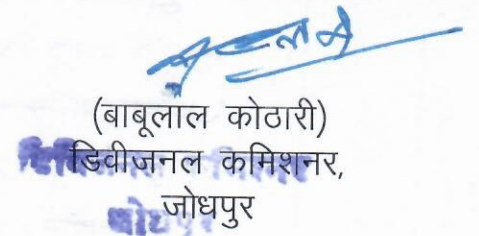 (बाबूलाल कोठारी)
डिवीजनल कमिशनर,
जोधपुर